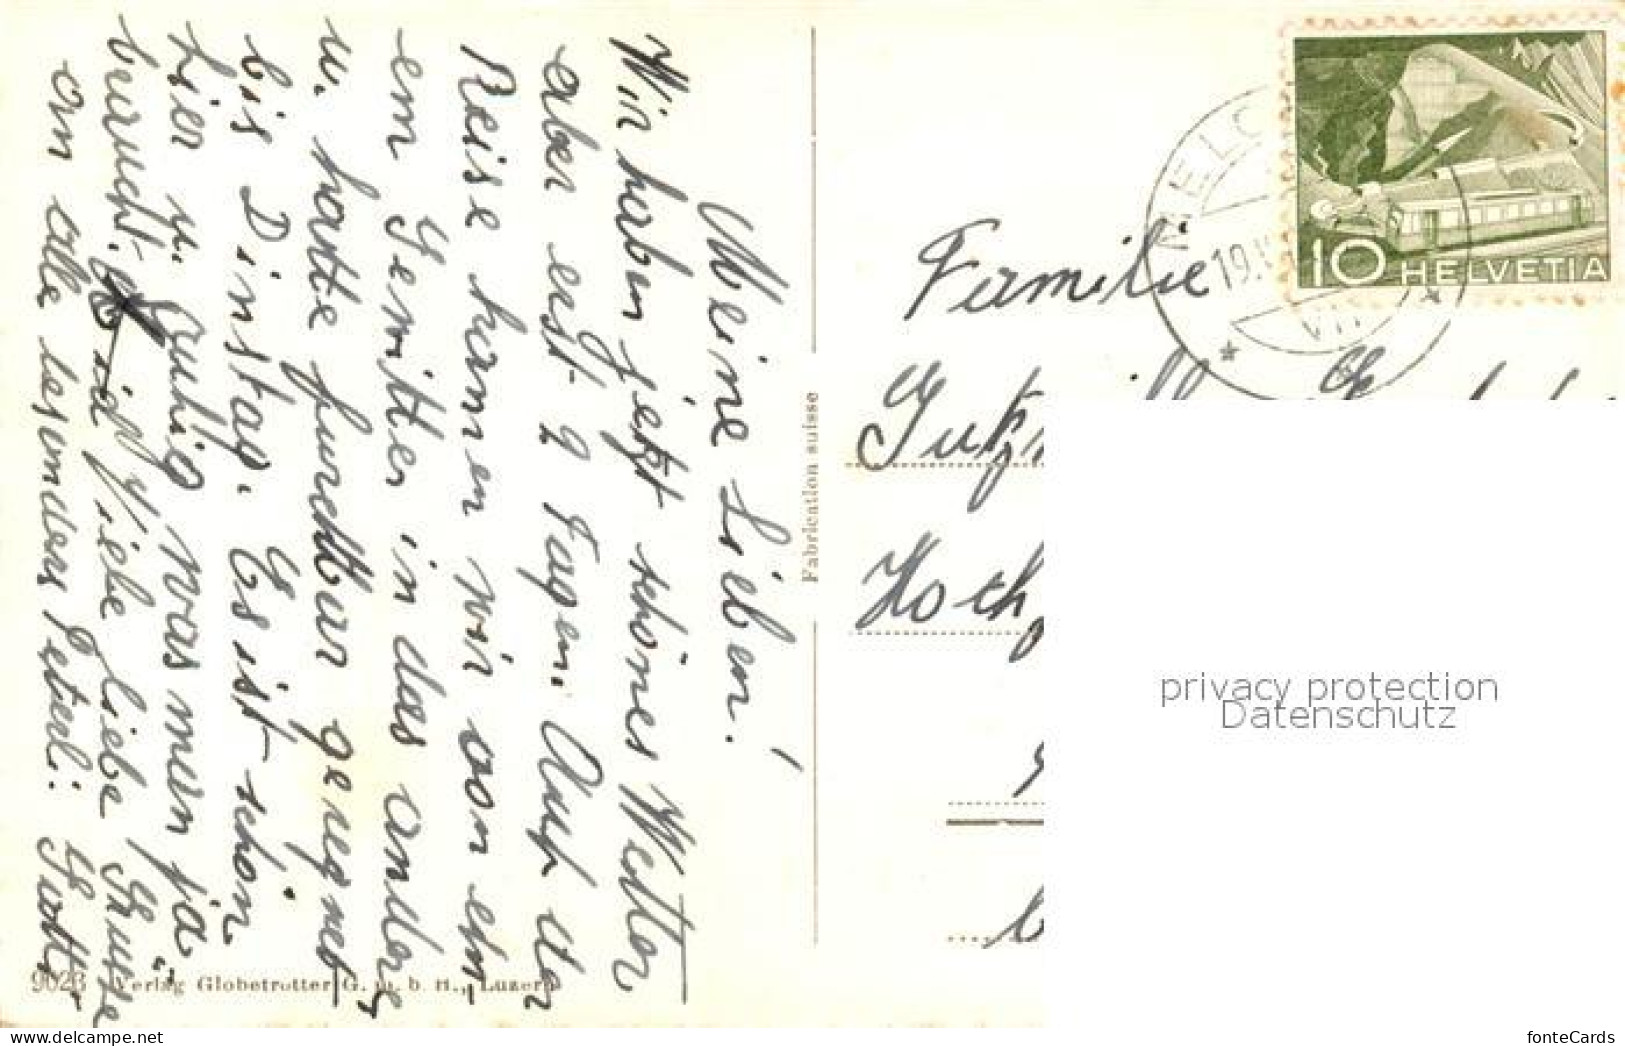 Meine Lieben!
Wir haben jetzt schönes Wetter
aber erst 2 Tagen. Auf der
Reise kamen wir von ein-
em Gewitter in das andere
u. hatte furchtbar geregnet
bis Dinstag. Es ist schön
hier u. ruhig was mein ja
braucht. Viele liebe Grüsse
an alle besonders Peterli.
Fabrication suisse
9023 Verlag Globetrotter G. m. b. H., Luzern
Familie
10 HELVETIA
19.
VII
privacy protection
Datenschutz
fonteCards